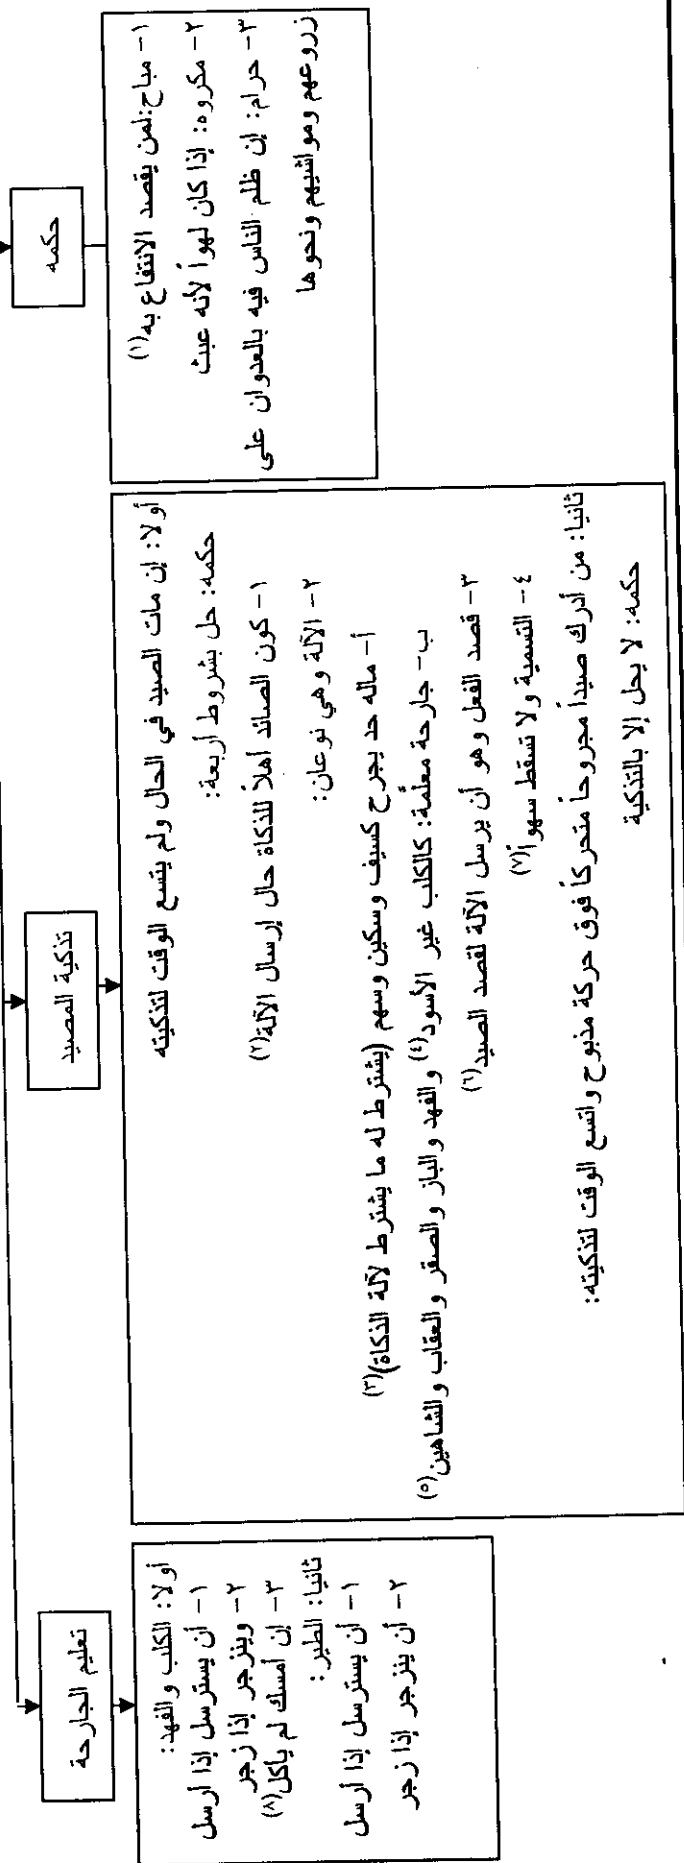 حكمه
١- مباح: لمن يقصد الانتفاع به(١)
٢- مكروه: إذا كان لهواً لأنه عبث
٣- حرام: إن ظلم الناس فيه بالعدوان على
زروعهم ومواشيهم ونحوها
تذكية المصيد
أولا: إن مات الصيد في الحال ولم يتسع الوقت لتذكيته
حكمه: حل بشروط أربعة:
١- كون الصائد أهلاً للذكاة حال إرسال الآلة(٢)
٢- الآلة وهي نوعان:
أ- ماله حد يجرح كسيف وسكين وسهم (يشترط له ما يشترط لآلة الذكاة)(٣)
ب- جارحة معلَّمة: كالكلب غير الأسود(٤) والفهد والباز والصقر والعقاب والشاهين(٥)
٣- قصد الفعل وهو أن يرسل الآلة لقصد الصيد(٦)
٤- التسمية ولا تسقط سهواً(٧)
ثانيا: من أدرك صيداً مجروحاً متحركاً فوق حركة مذبوح واتسع الوقت لتذكيته:
حكمه: لا يحل إلا بالتذكية
تعليم الجارحة
أولا: الكلب والفهد:
١- أن يسترسل إذا أرسل
٢- وينزجر إذا زجر
٣- إن أمسك لم يأكل(٨)
ثانيا: الطير:
١- أن يسترسل إذا أرسل
٢- أن ينزجر إذا زجر